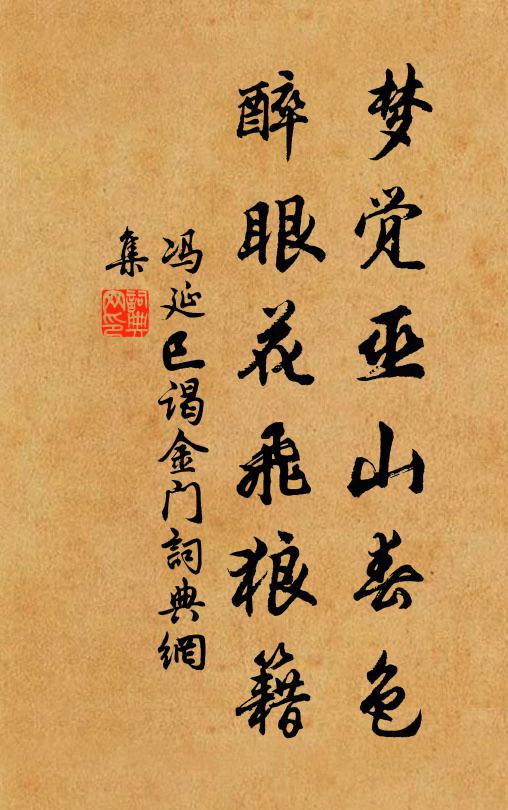 梦觉巫山春色
醉眼花飞狼籍
冯延巳谒金门詞典網
集
詞典网印